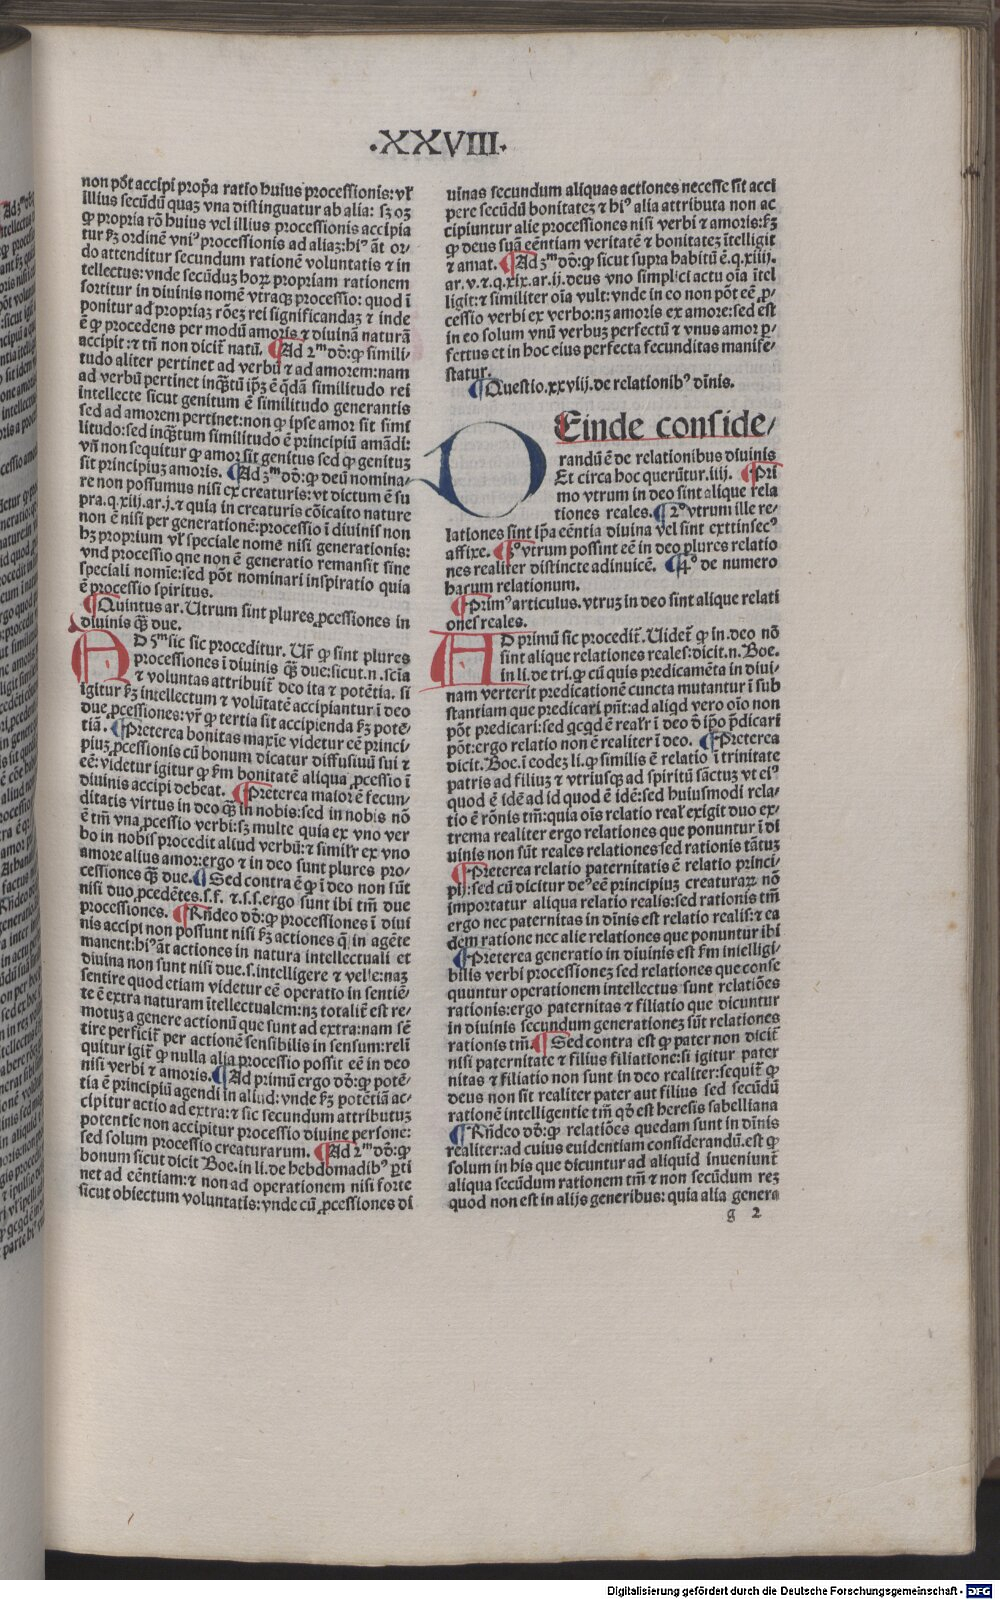 .XXVIII.
non põt accipi propa ratio huius processionis: vl'
illius secūdū quaz vna distinguatur ab alia: sz oz
ꝙ propria rō huius vel illius processionis accipia
tur ẜꝫ ordinē vni⁹ processionis ad aliaz: hi⁹ āt or⸗
do attenditur secundum rationē voluntatis ⁊ in
tellectus: vnde secūduz horꝝ propriam rationem
sortitur in diuinis nomē vtraqꝫ processio: quod ī
ponitur ad propriaz rōez rei significandaz ⁊ inde
ē ꝙ procedens per modū amoris ⁊ diuinā naturā
accipit: ⁊ tn̄ non dicit̄ natū. ¶Ad 2ᵐ dō: ꝙ simili⸗
tudo aliter pertinet ad verbū ⁊ ad amorem: nam
ad verbū pertinet inqꝫtū ip̄z ē q̄dā similitudo rei
intellecte sicut genitum ē similitudo generantis
sed ad amorem pertinet: non ꝙ ipse amor sit simi
litudo: sed inqꝫtum similitudo ē principiū amādi:
vn̄ non sequitur ꝙ amor sit genitus sed ꝙ genituz
sit principiuz amoris. ¶Ad 3ᵐ dō: ꝙ deū nomina⸗
re non possumus nisi ex creaturis: vt dictum ē su
pra.q.xiij.ar.j. ⁊ quia in creaturis cōicaito nature
non ē nisi per generationē: processio ī diuinis non
hz proprium vl' speciale nomē nisi generationis:
vnd processio que non ē generatio remansit sine
speciali nomīe: sed põt nominari inspiratio quia
ē processio spiritus.
¶Quintus ar. Utrum sint plures ꝓcessiones in
diuinis qꝫ due.
AD 5ᵐ sic sic proceditur. Ur̄ ꝙ sint plures
processiones ī diuinis qꝫ due: sicut.n.scīa
⁊ voluntas attribuit̄ deo ita ⁊ potētia. si
igitur ẜꝫ intellectum ⁊ volūtatē accipiantur ī deo
due ꝓcessiones: vr̄ ꝙ tertia sit accipienda ẜꝫ potē⸗
tiā. ¶Preterea bonitas maxīe videtur eē princi⸗
piuz ꝓcessionis cū bonum dicatur diffusiuū sui ⁊
eē: videtur igitur ꝙ ẜm bonitatē aliqua ꝓcessio ī
diuinis accipi debeat. ¶Preterea maior ē fecun⸗
ditatis virtus in deo qꝫ in nobis: sed in nobis nō
ē tm̄ vna ꝓcessio verbi: sz multe quia ex vno ver
bo in nobis procedit aliud verbū: ⁊ simil'r ex vno
amore alius amor: ergo ⁊ in deo sunt plures pro⸗
cessiones qꝫ due. ¶Sed contra ē ꝙ ī deo non sūt
nisi duo ꝓcedētes.s.f. ⁊.s.s. ergo sunt ibi tm̄ due
processiones. ¶Rn̄deo dō: ꝙ processiones ī diui
nis accipi non possunt nisi ẜꝫ actiones q̄ in agēte
manent: hi⁹ āt actiones in natura intellectuali et
diuina non sunt nisi due.s.intelligere ⁊ velle: naz
sentire quod etiam videtur eē operatio in sentiē⸗
te ē extra naturam ītellectualem: nz totalit̄ est re⸗
motuz a genere actionū que sunt ad extra: nam sē
tire perficit̄ per actionē sensibilis in sensum: reli
quitur igit̄ ꝙ nulla alia processio possit eē in deo
nisi verbi ⁊ amoris. ¶Ad primū ergo dō: ꝙ potē⸗
tia ē principiū agendi in aliud: vnde ẜꝫ potētiā ac⸗
cipitur actio ad extra: ⁊ sic secundum attributuz
potentie non accipitur processio diuine persone:
sed solum processio creaturarum. ¶Ad 2ᵐ dō: ꝙ
bonum sicut dicit Boe.in li.de hebdomadib⁹ ꝑti
net ad eēntiam: ⁊ non ad operationem nisi forte
sicut obiectum voluntatis: vnde cū ꝓcessiones di
uinas secundum aliquas actiones necesse sit acci
pere secūdū bonitatez ⁊ hi⁹ alia attributa non ac
cipiuntur alie processiones nisi verbi ⁊ amoris: ẜꝫ
ꝙ deus suā eēntiam veritatē ⁊ bonitatez ītelligit
⁊ amat. ¶Ad 3ᵐ dō: ꝙ sicut supra habitū ē.q.xiiij.
ar.v.⁊.q.xix.ar.ij.deus vno simplici actu oīa ītel
ligit: ⁊ similiter oīa vult: vnde in eo non põt eē ꝓ⸗
cessio verbi ex verbo: nz amoris ex amore: sed est
in eo solum vnū verbuz perfectū ⁊ vnus amor ꝑ⸗
fectus et in hoc eius perfecta fecunditas manife⸗
statur.
¶Questio.xxviij.de relationib⁹ dīnis.
DEinde conside⸗
randū ē de relationibus diuinis
Et circa hoc querūtur.iiij. ¶Pri
mo vtrum in deo sint alique rela
tiones reales. ¶2⁰ vtrum ille re⸗
lationes sint ip̄a eēntia diuina vel sint exttinsec⁹
affixe. ¶3⁰ vtrum possint eē in deo plures relatio
nes realiter distincte adinuicē. ¶4⁰ de numero
harum relationum.
¶Prim⁹ articulus. vtruz in deo sint alique relati
ones reales.
AD primū sic procedit̄. Uidet̄ ꝙ in.deo nō
sint alique relationes reales: dicit.n.Boe.
in li.de tri.ꝙ cū quis predicamēta in diui⸗
nam verterit predicationē cuncta mutantur ī sub
stantiam que predicari pn̄t: ad aliqd vero oīo non
põt predicari: sed qcqd ē real'r ī deo ō ip̄o p̄dicari
põt: ergo relatio non ē realiter ī deo. ¶Preterea
dicit.Boe.ī eodez li.ꝙ similis ē relatio ī trinitate
patris ad filiuz ⁊ vtriusqꝫ ad spiritū sāctuz vt ei⁹
quod ē idē ad id quod ē idē: sed huiusmodi rela⸗
tio ē rōnis tm̄: quia oīs relatio real' exigit duo ex⸗
trema realiter ergo relationes que ponuntur ī di
uinis non sūt reales relationes sed rationis tātuz
¶Preterea relatio paternitatis ē relatio princi⸗
pij: sed cū dicitur de⁹ eē principiuz creaturaꝝ nō
importatur aliqua relatio realis: sed rationis tm̄
ergo nec paternitas in dīnis est relatio realis: ⁊ ea
dem ratione nec alie relationes que ponuntur ibi
¶Preterea generatio in diuinis est ẜm inielligi⸗
bilis verbi processionez sed relationes que conse
quuntur operationem intellectus sunt relatiōes
rationis: ergo paternitas ⁊ filiatio que dicuntur
in diuinis secundum generationez sūt relationes
rationis tm̄. ¶Sed contra est ꝙ pater non dicit̄
nisi paternitate ⁊ filius filiatione: si igitur pater
nitas ⁊ filiatio non sunt in deo realiter: sequit̄ ꝙ
deus non sit realiter pater aut filius sed secūdū
rationē intelligentie tm̄ qō est heresis sabelliana
¶Rn̄deo dō: ꝙ relatiōes quedam sunt in dīnis
realiter: ad cuius euidentiam considerandū.est ꝙ
solum in his que dicuntur ad aliquid inueniunt̄
aliqua secūdum rationem tm̄ ⁊ non secūdum rez
quod non est in alijs generibus: quia alia genera
g 2
Digitalisierung gefördert durch die Deutsche Forschungsgemeinschaft - DFG